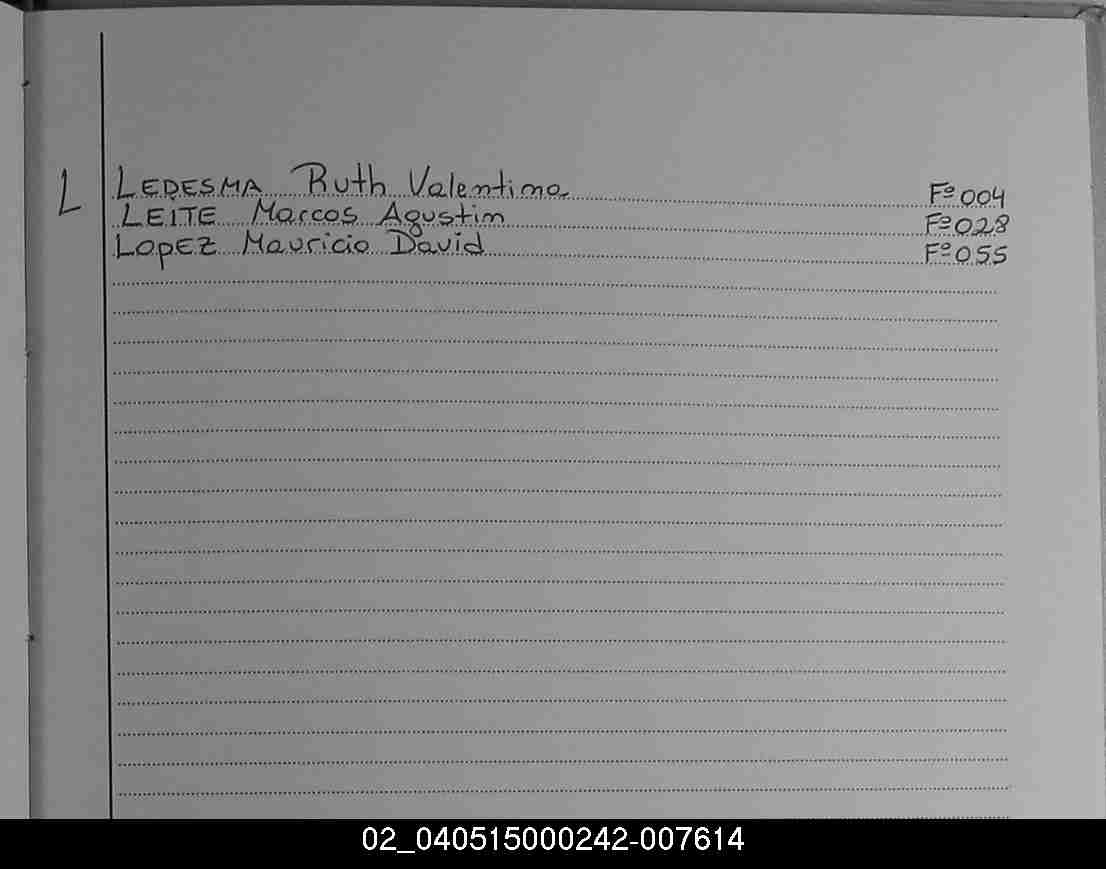 L
LEDESMA Ruth Valentina Fº 004
LEITE Marcos Agustin Fº 028
LOPEZ Mauricio David Fº 055
02_040515000242-007614